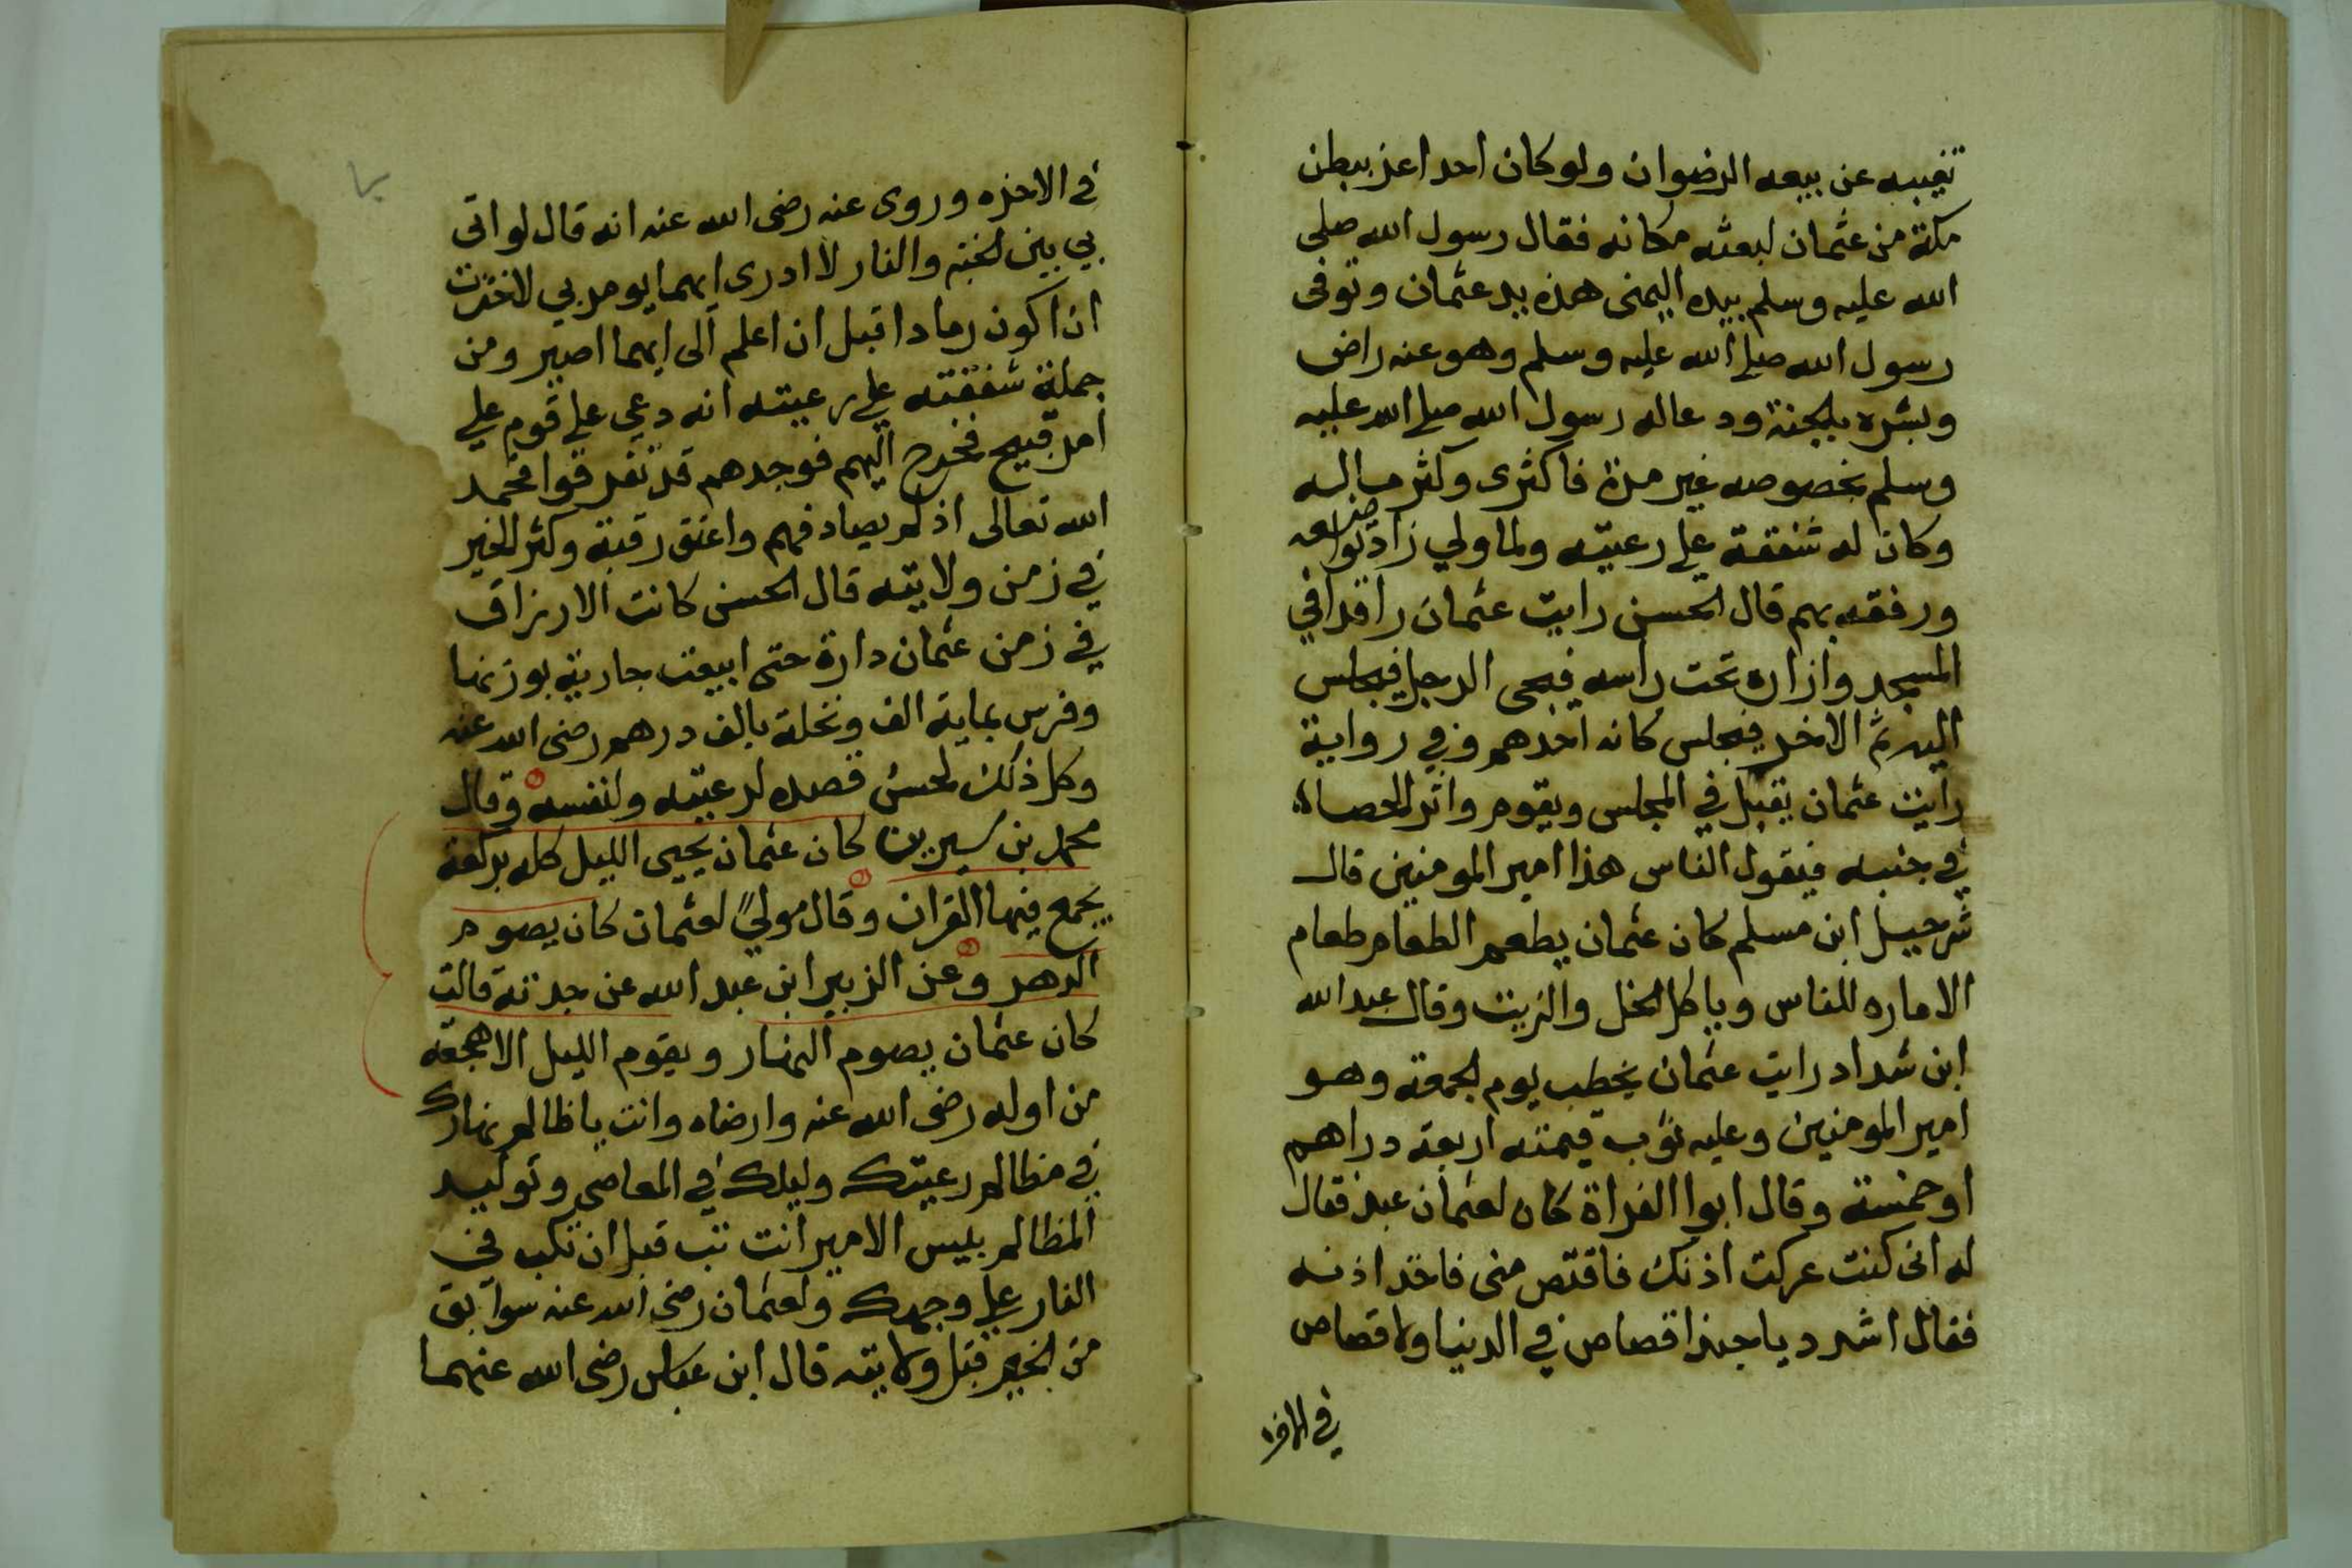 تغيبه عن بيعه الرضوان ولو كان احدا عز ببطن
مكة من عثمان لبعثه مكانه فقال رسول الله صلى
الله عليه وسلم بيده اليمنى هذه يد عثمان وتوفى
رسول الله صلى الله عليه وسلم وهو عنه راض
وبشره بالجنة ودعا له رسول الله صلى الله عليه
وسلم بخصوصه غير مرة فاكثرى وكثر ماله
وكان له شفقة على رعيته ولما ولي زاد تواضعه
ورفقه بهم قال الحسن رايت عثمان راقدا في
المسجد وازاره تحت راسه فيجى الرجل فيجلس
اليه ثم الاخر فيجلس كانه احدهم وفي رواية
رايت عثمان يقيل في المجلس ويقوم واثر الحصاة
في جنبه فيقول الناس هذا امير المومنين قال
شرحبيل ابن مسلم كان عثمان يطعم الطعام طعام
الاماره للناس وياكل الخل والزيت وقال عبد الله
ابن شداد رايت عثمان يخطب يوم الجمعة وهو
امير المومنين وعليه ثوب قيمته اربعة دراهم
او خمسة وقال ابوا الفراة كان لعثمان عبد فقال
له انى كنت عركت اذنك فاقتص منى فاخذ اذنه
فقال اشدد يا حبذا قصاص في الدنيا ولا قصاص
في الاخرة
في الاخره وروى عنه رضى الله عنه انه قال لو انى
بي بين الجنة والنار لا ادرى ايهما يومر بي لاخترت
ان اكون رمادا قبل ان اعلم الى ايهما اصير ومن
جملة شفقته على رعيته انه دعي على قوم على
امر قبيح فخرج اليهم فوجدهم قد تفرقوا فحمد
الله تعالى اذ لم يصادفهم واعتق رقبة وكثر الخير
في زمن ولايته قال الحسن كانت الارزاق
في زمن عثمان دارة حتى ابيعت جارية بوزنها
وفرس بماية الف ونخلة بالف درهم رضى الله عنه
وكل ذلك لحسن قصده لرعيته ولنفسه وقال
محمد بن سيرين كان عثمان يحيى الليل كله بركعة
يجمع فيها القران وقال مولي لعثمان كان يصوم
الدهر وعن الزبير ابن عبد الله عن جدته قالت
كان عثمان يصوم النهار ويقوم الليل الا هجعة
من اوله رضى الله عنه وارضاه وانت يا ظالم نهارك
في مظالم رعيتك وليلك في المعاصى وتوليد
المظالم بليس الامير انت تب قبل ان تكب في
النار على وجهك ولعثمان رضى الله عنه سوابق
من الخير قبل ولايته قال ابن عباس رضى الله عنهما